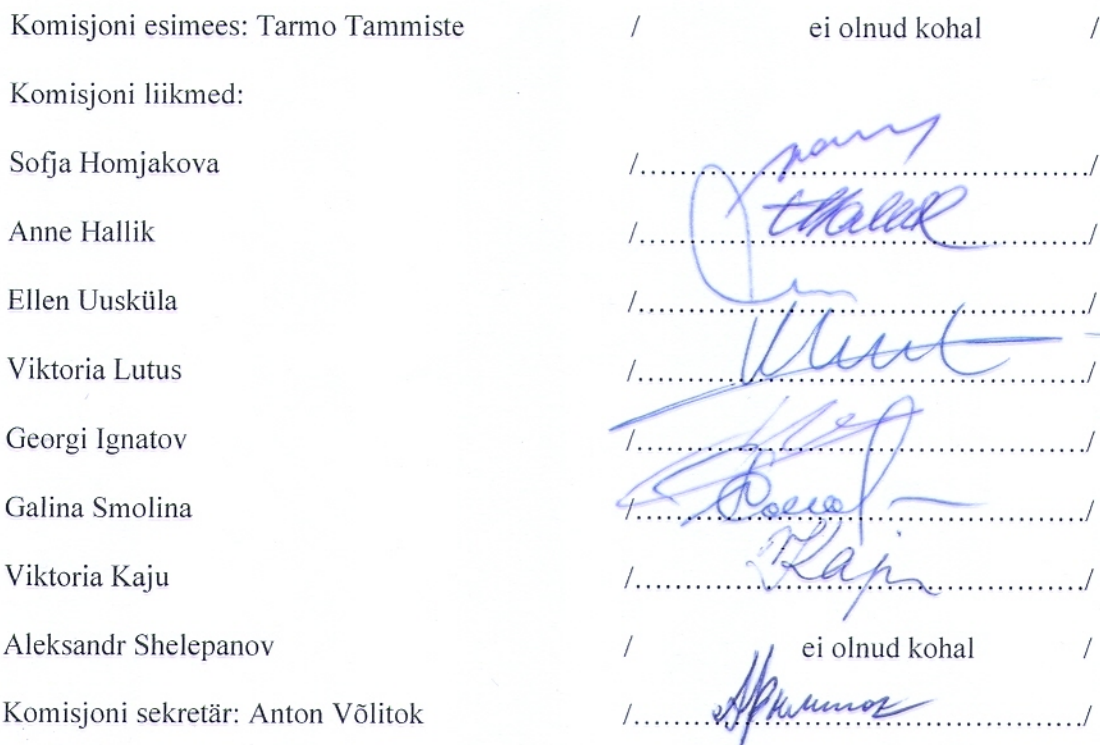 Komisjoni esimees: Tarmo Tammiste / ei olnud kohal /
Komisjoni liikmed:
Sofja Homjakova /............................................................/
Anne Hallik /............................................................/
Ellen Uusküla /............................................................/
Viktoria Lutus /............................................................/
Georgi Ignatov /............................................................/
Galina Smolina /............................................................/
Viktoria Kaju /............................................................/
Aleksandr Shelepanov / ei olnud kohal /
Komisjoni sekretär: Anton Võlitok /............................................................/